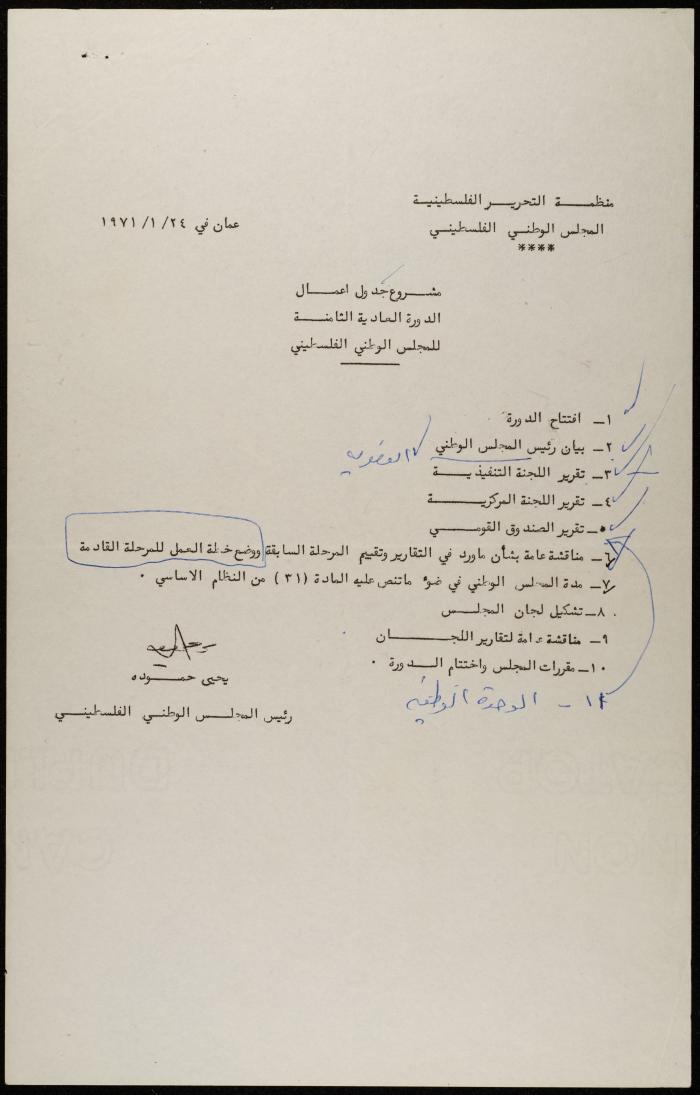 منظمة التحرير الفلسطينية
المجلس الوطني الفلسطيني
****
عمان في ٢٤/ ١/ ١٩٧١
مشروع جدول اعمال
الدورة العادية الثامنة
للمجلس الوطني الفلسطيني
١- افتتاح الدورة
٢- بيان رئيس المجلس الوطني العضوية
٣- تقرير اللجنة التنفيذية
٤- تقرير اللجنة المركزية
٥- تقرير الصندوق القومي
٦- مناقشة عامة بشأن ماورد في التقارير وتقييم المرحلة السابقة ووضع خطة العمل للمرحلة القادمة
٧- مدة المجلس الوطني في ضوء ماتنص عليه المادة (٣١) من النظام الاساسي ٠
٨- تشكيل لجان المجلس
٩- مناقشة عامة لتقارير اللجان
١٠- مقررات المجلس واختتام الدورة ٠
١١ - الوحدة الوطنية
يحيى حموده
رئيس المجلس الوطني الفلسطيني